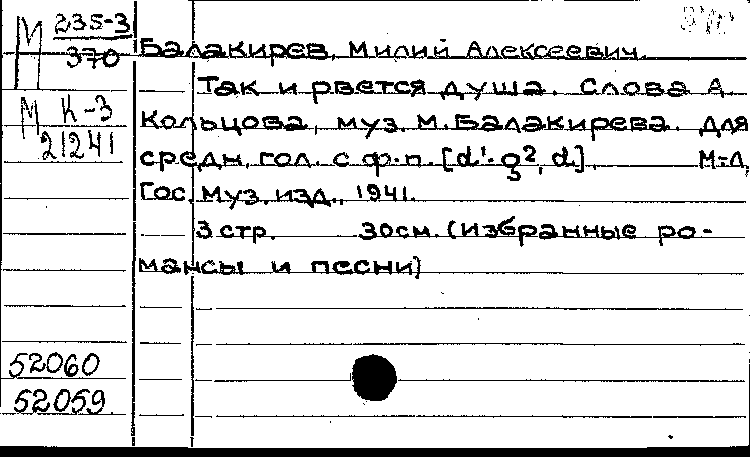 М 235-3
370
Балакирев, Милий Алексеевич.
Так и рвется душа. Слова А.
М К-3
21241
Кольцова, муз. М. Балакирева. Для
средн. гол. с ф.-п. [d¹-g², d]. М-Л,
Гос. муз. изд., 1941.
3 стр. 30см. (избранные ро-
мансы и песни)
52060
52059